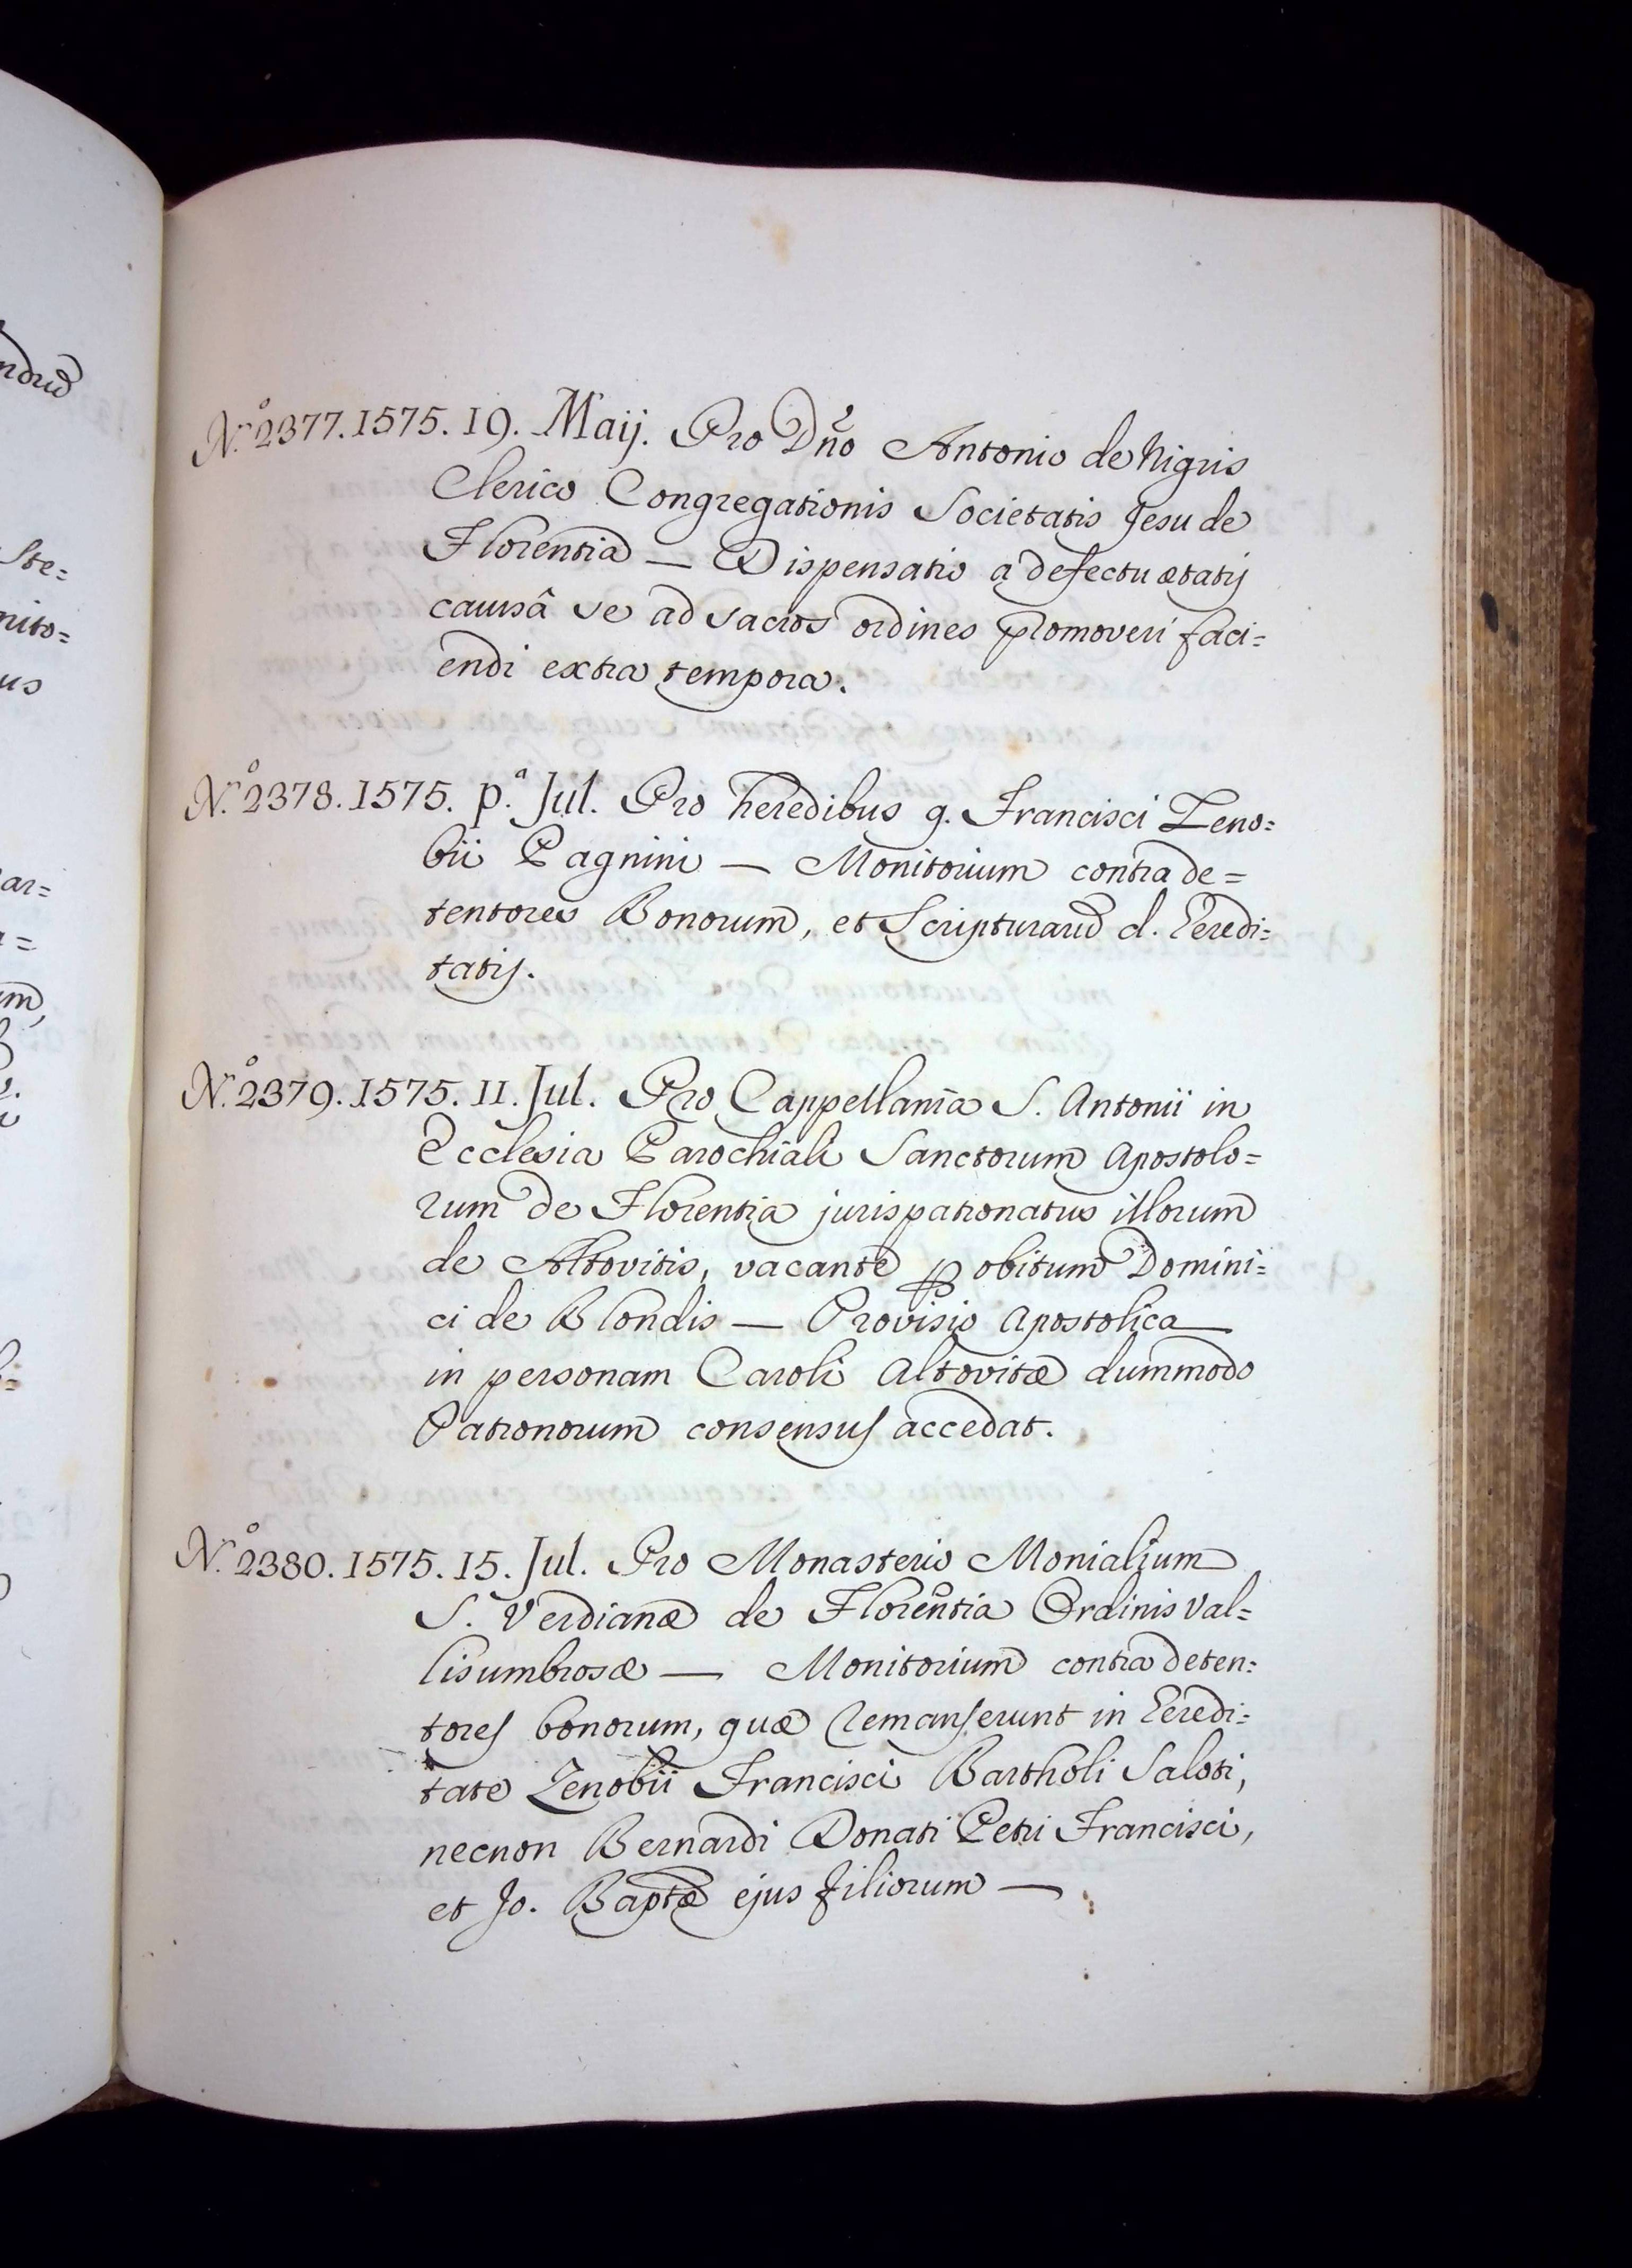 N.º 2377. 1575. 19. Maij. Pro Dño Antonio de Nigris
Clerico Congregationis Societatis Jesu de
Florentia — Dispensatio a defectu ætatis
causâ se ad sacros ordines promoveri faci=
endi extra tempora.
N.º 2378. 1575. p.ª Jul. Pro heredibus q. Francisci Zeno=
bii Pagnini — Monitorium contra de=
tentores Bonorum, et Scripturarũ d. Heredi=
tatis.
N.º 2379. 1575. 11. Jul. Pro Cappellania S. Antonii in
Ecclesia Parochiali Sanctorum Apostolo=
rum de Florentia jurispatronatus illorum
de Altovitis, vacante ꝑ obitum Domini=
ci de Blondis — Provisio Apostolica
in personam Caroli Altovitæ dummodo
Patronorum consensus accedat.
N.º 2380. 1575. 15. Jul. Pro Monasterio Monialium
S. Verdianæ de Florentia Ordinis Val=
lisumbrosæ — Monitorium contra deten=
tores bonorum, quæ remanserunt in Heredi=
tate Zenobii Francisci Bartholi Saloti,
necnon Bernardi Donati Petri Francisci,
et Jo. Baptæ ejus filiorum —
ndrũ
Ste=
nito=
us
ar=
um,